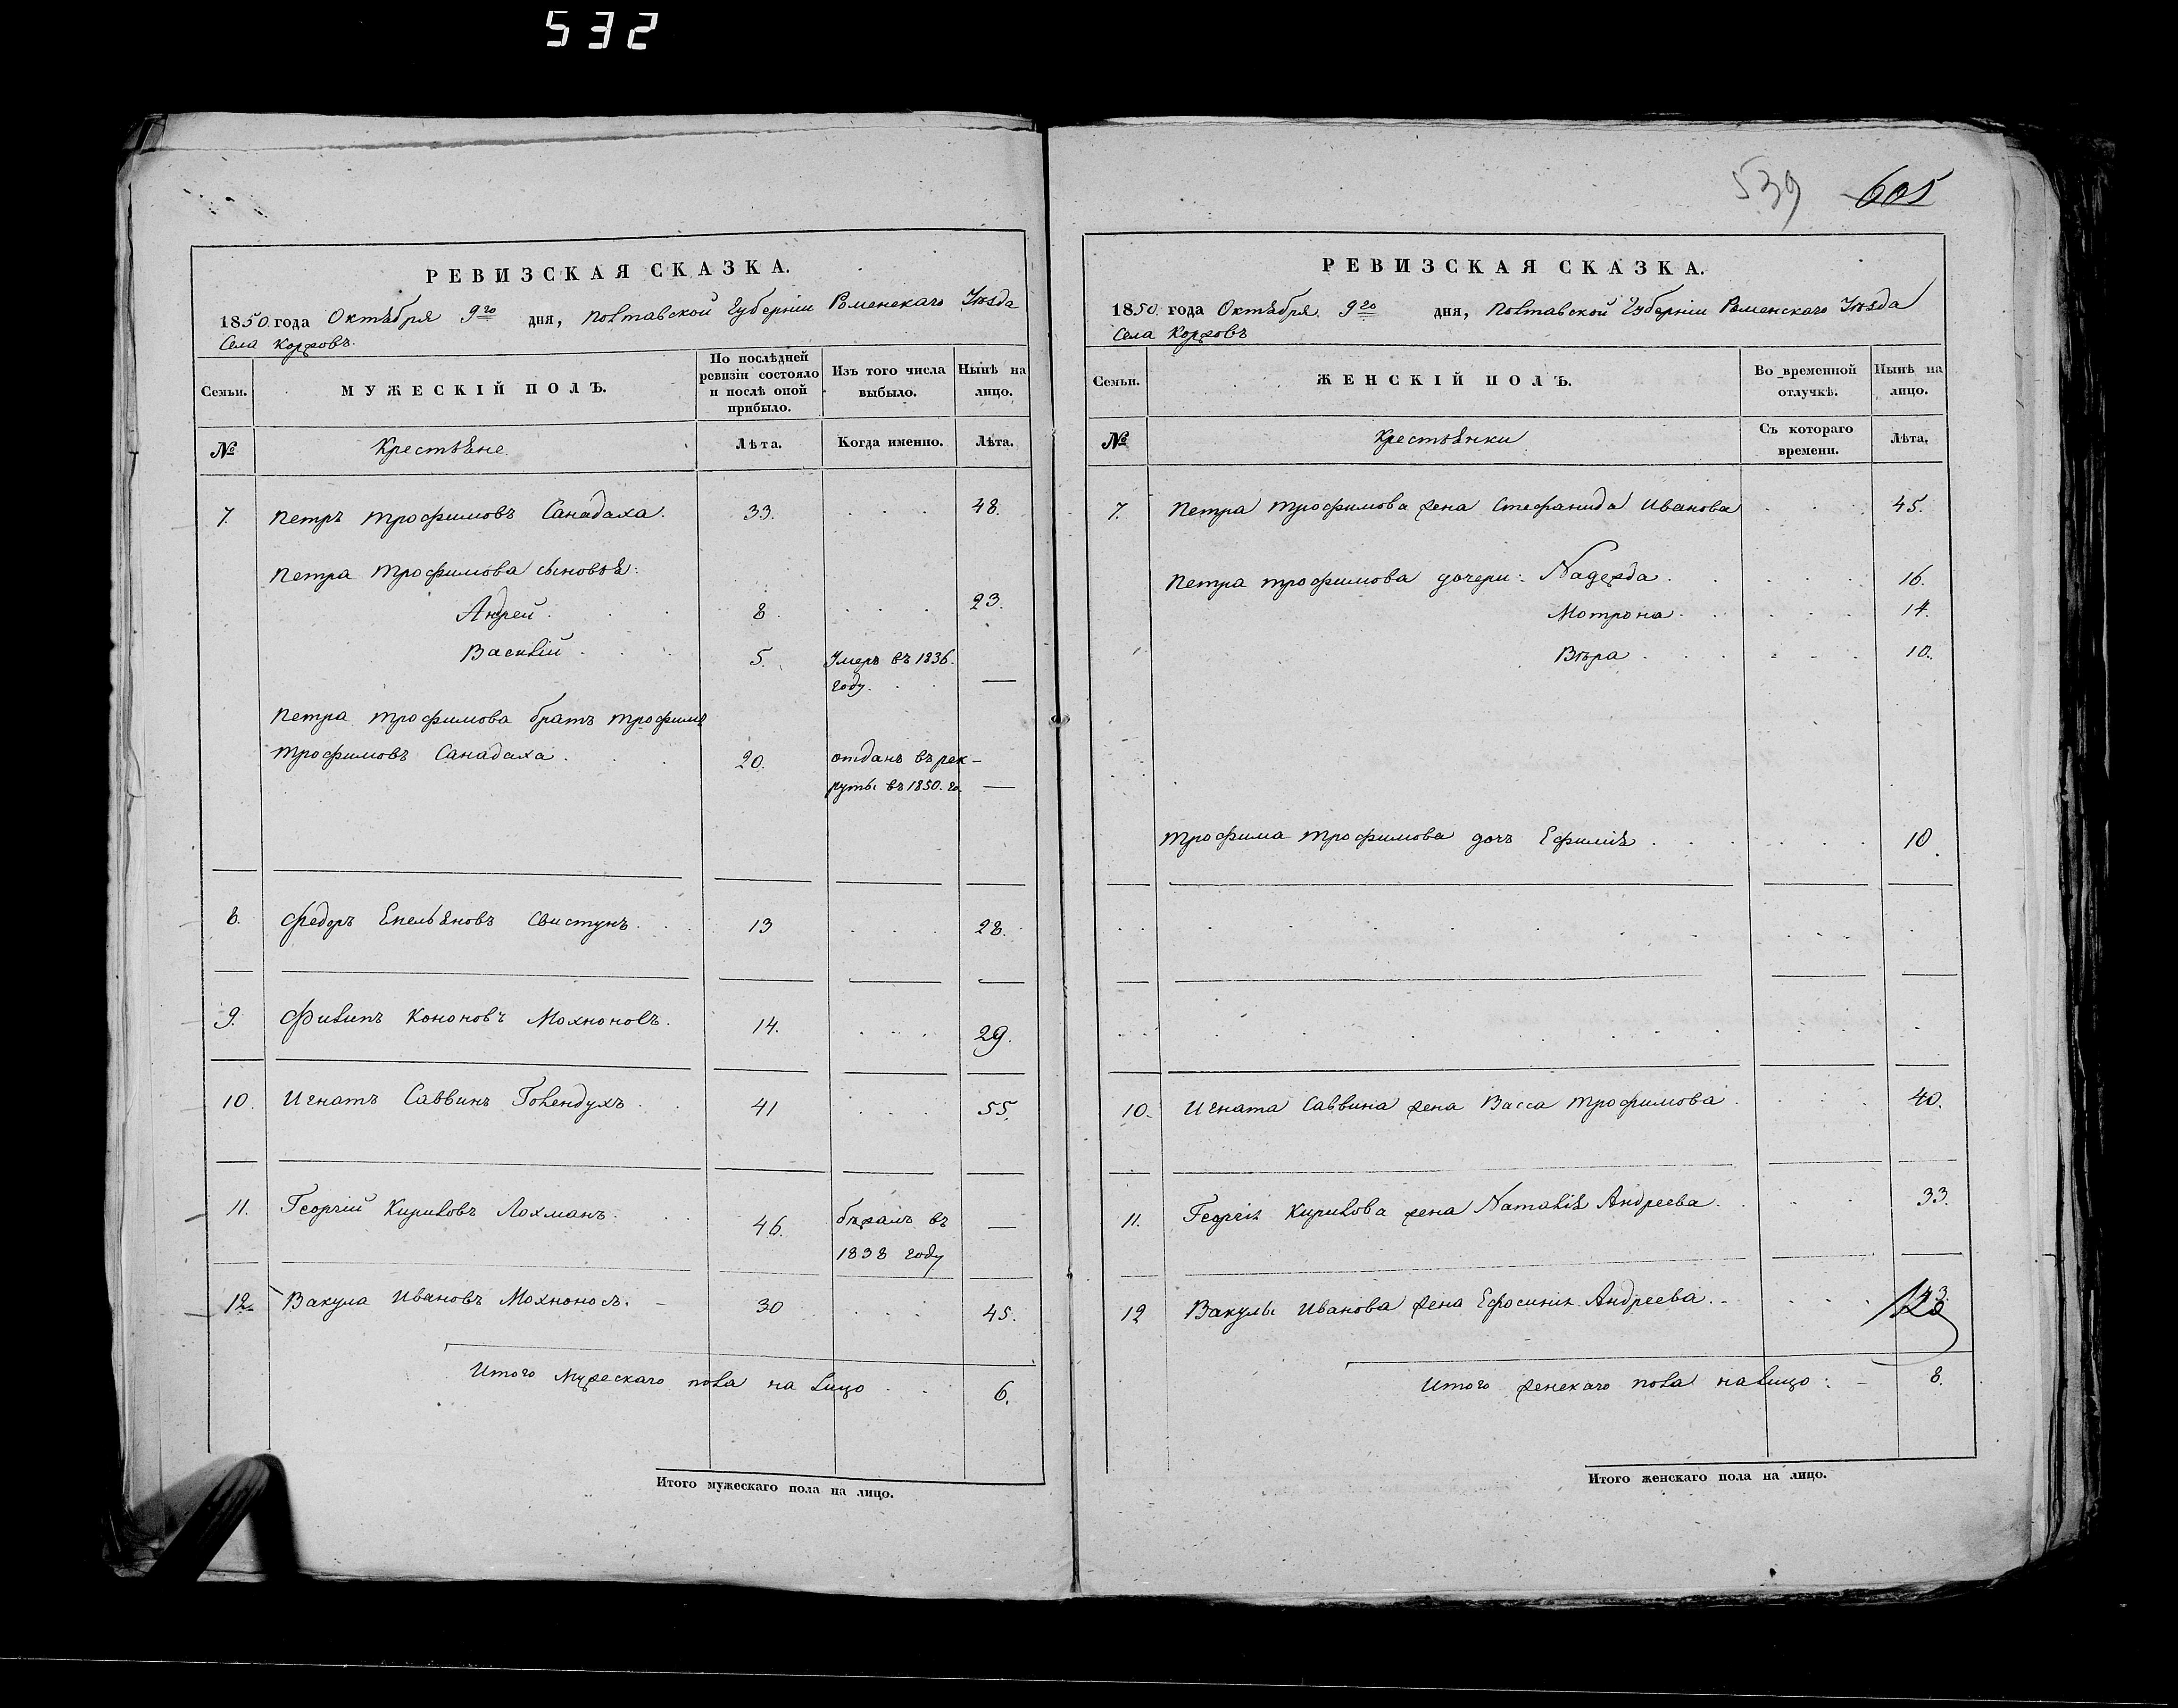 532
РЕВИЗСКАЯ СКАЗКА.
1850. года Октября 9го дня, Полтавской Губерніи Роменскаго Уѣзда
Села Коржовъ.
Семьи.
МУЖЕСКІЙ ПОЛЪ.
По послѣдней
ревизіи состояло
и послѣ оной
прибыло.
Изъ того числа
выбыло.
Нынѣ на
лицо.
№
Крестьяне
Лѣта.
Когда именно.
Лѣта.
7. Петръ Трофимовъ Санадаха. 33. 48.
Петра Трофимова сыновья:
Андрей. 8. 23.
Василій. 5. Умеръ въ 1836.
году. —
Петра Трофимова братъ Трофимъ
Трофимовъ Санадаха. 20. отданъ въ рек-
руты въ 1850. го. —
8. Федоръ Емельяновъ Свистунъ. 13 28.
9. Филипъ Кононовъ Мохноносъ. 14. 29.
10. Игнатъ Саввинъ Голендухъ. 41 55.
11. Георгій Кириловъ Лохманъ. 46. бѣжалъ въ —
1838 году
12. Вакула Ивановъ Мохноносъ. 30 45.
Итого Мужескаго пола на лицо 6.
Итого мужескаго пола на лицо.
539 605
РЕВИЗСКАЯ СКАЗКА.
1850. года Октября 9го дня, Полтавской Губерніи Роменскаго Уѣзда
Села Коржовъ
Семьи.
ЖЕНСКІЙ ПОЛЪ.
Во временной
отлучкѣ.
Нынѣ на
лицо.
№
Крестьянки
Съ котораго
времени.
Лѣта.
7. Петра Трофимова жена Стефанида Иванова 45.
Петра Трофимова дочери: Надежда. 16.
Мотрона. 14.
Вѣра. 10.
Трофима Трофимова дочь Ефимія 10.
10. Игната Саввина жена Васса Трофимова. 40.
11. Георгія Кирилова жена Наталія Андреева. 33.
12 Вакулы Иванова жена Ефросинія Андреева.
Итого женскаго пола налицо: 8.
Итого женскаго пола на лицо.